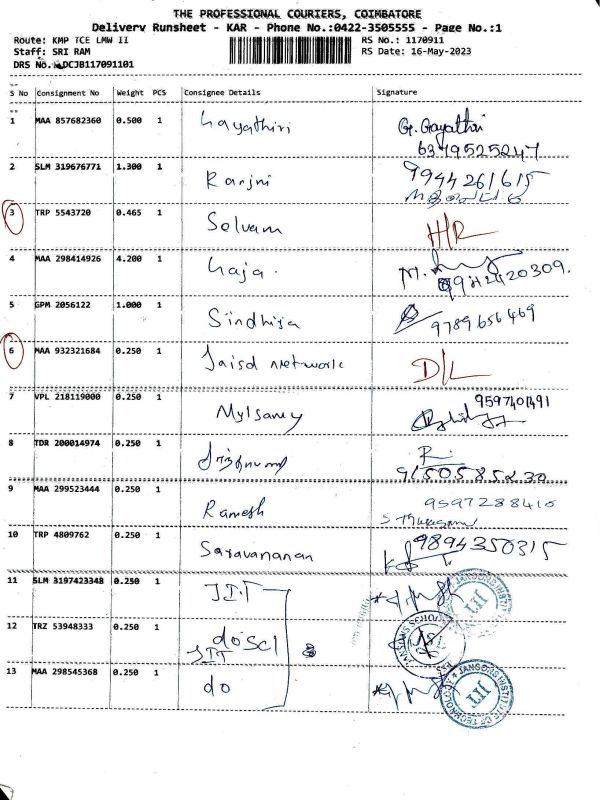 THE PROFESSIONAL COURIERS, COIMBATORE
Delivery Runsheet - KAR - Phone No.:0422-3505555 - Page No.:1
Route: KMP TCE LMW II RS No.: 1170911
Staff: SRI RAM RS Date: 16-May-2023
DRS No. DCJB117091101
S No Consignment No Weight PCS Consignee Details Signature
1 MAA 857682360 0.500 1 Gayathiri G. Gayathri
6379525247
2 SLM 319676771 1.300 1 Ranjni 9944261615
3 TRP 5543720 0.465 1 Selvam H/R
4 MAA 298414926 4.200 1 Gaja.
5 GPM 2056122 1.000 1 Sindhija 9789656469
6 MAA 932321684 0.250 1 Jaisd network D/L
7 VPL 218119000 0.250 1 Mylsamy 9597401491
8 TDR 200014974 0.250 1 R.
9 MAA 299523444 0.250 1 Ramesh 9597288410
10 TRP 4809762 0.250 1 Saravananan 9894350315
11 SLM 3197423348 0.250 1 J.I.T
12 TRZ 53948333 0.250 1 do scl
JIT
13 MAA 298545368 0.250 1 do
JIT
JANSONS INSTITUTE OF TECHNOLOGY